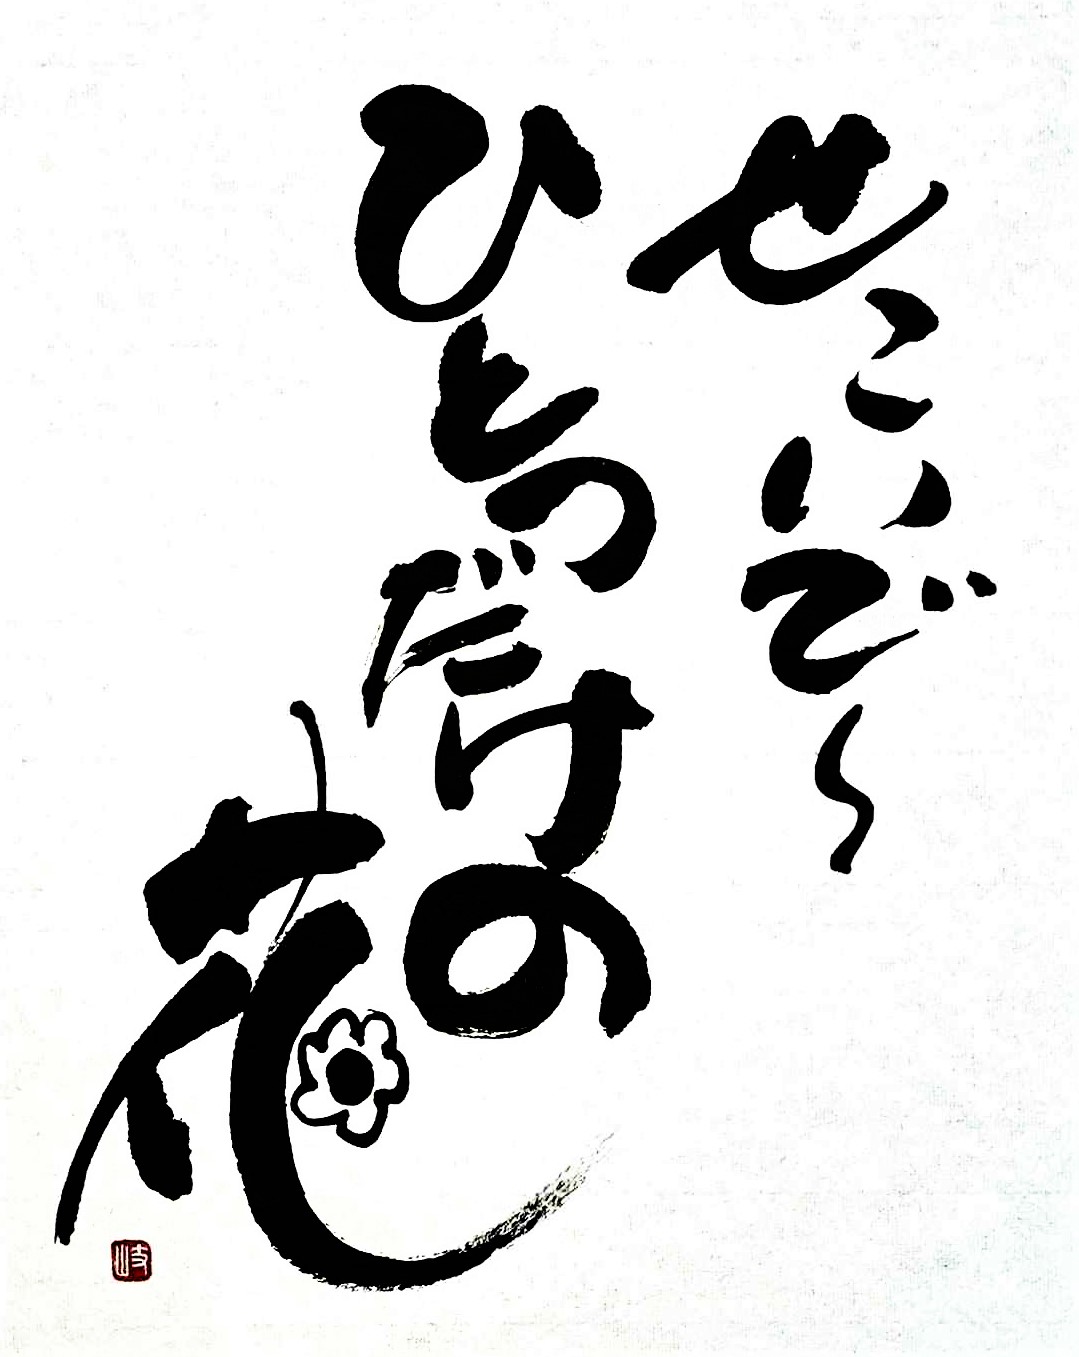 せこいで〜
ひとつだけの
花
岐